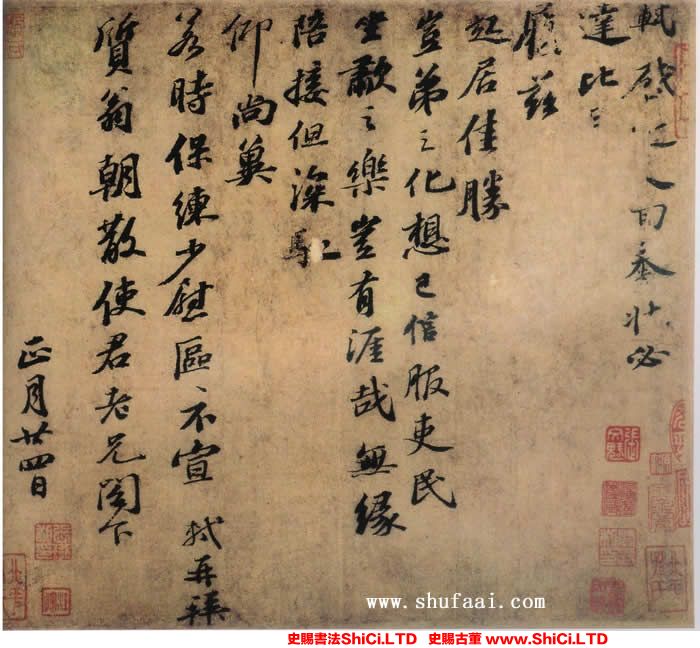 軾啓近人回奉狀必
達比日
履茲
起居佳勝
豈弟之化想已信服吏民
坐歗之樂豈有涯哉無緣
陪接但深馳
仰尚冀
若時保練少慰區〻不宣 軾再拜
質翁朝散使君老兄閣下
正月廿四日
www.shufaai.com
史赐書法ShiCi.LTD 史赐古董 www.ShiCi.LTD